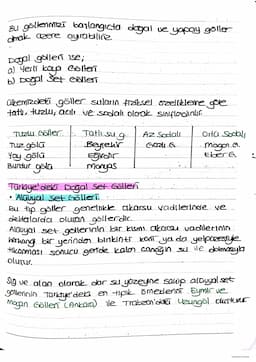 Bu göllerimizi başlangıçta doğal ve yapay göller
olmak üzere ayırabiliriz
Doğal gölleri ise;
a) Yerli kaya Gölleri
b) Doğal Set Gölleri
Ülkemizdeki göller suların fiziksel özelliklerine göre
tatlı, tuzlu, acılı ve sodalı olarak sınıflandırılır.
Tuzlu Göller Tatlı su g. Az Sodalı Orta Sodalı
Tuz gölü Beyşehir Mogan G.
Yay gölü Eğirdir Eber G.
Burdur gölü Manyas
Türkiye'deki Doğal Set Gölleri
• Alüvyal Set Gölleri:
Bu tip göller genellikle akarsu vadilerinde ve
deltalarda oluşan göllerdir.
Alüvyal set göllerinin bir kısmı akarsu vadilerinin
herhangi bir yerinden birikinti koni ya da yelpazesiyle
tıkanması sonucu geride kalan çanağın su ile dolmasıyla
oluşur.
Sığ ve alan olarak dar su yüzeyine sahip alüvyal set
göllerinin Türkiye'deki en tipik örneklerini Eymir ve
Mogan Gölleri (Ankara) ile Trabzon'daki Uzungöl oluşturur